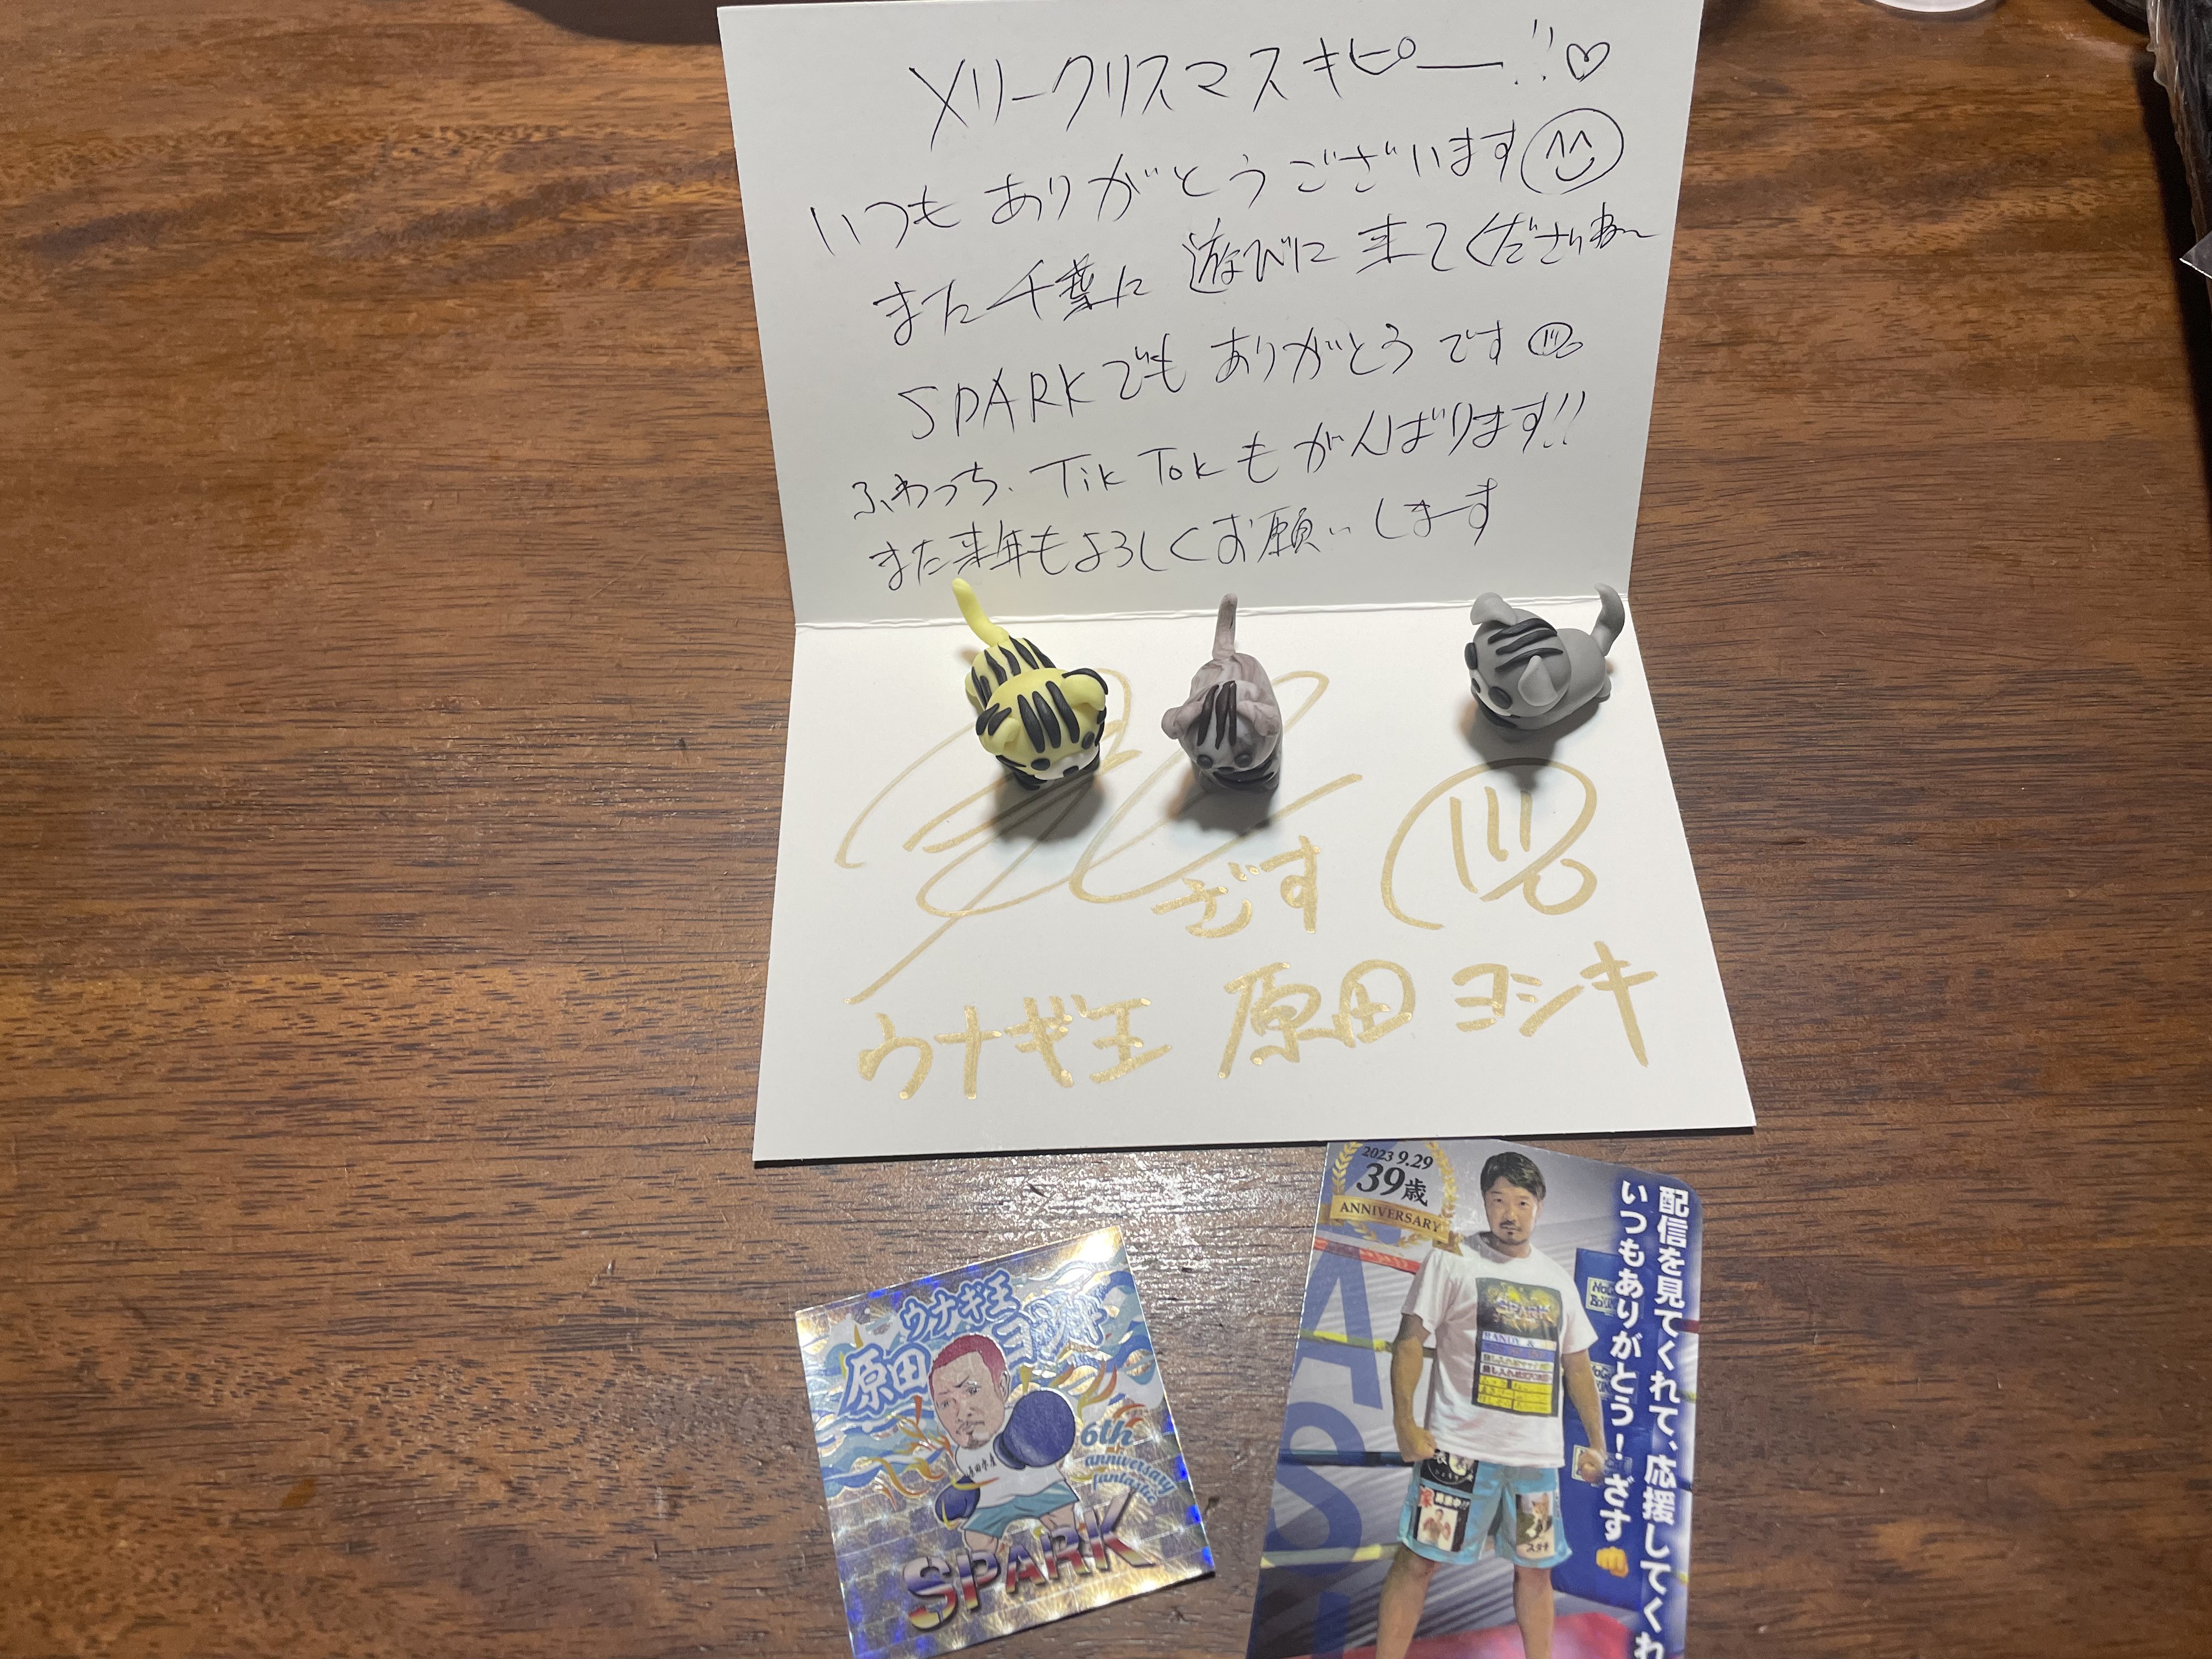 メリークリスマスキピー!!♡
いつもありがとうございます
また千葉に遊びに来てくださいね〜
SPARKでもありがとうです
ふわっち、TikTokもがんばります!!
また来年もよろしくお願いします
ざす
ウナギ王 原田 ヨシキ
ウナギ王
原田 ヨシキ
6th
anniversary
fantastic
SPARK
2023 9.29
39歳
ANNIVERSARY
配信を見てくれて、応援してくれ
いつもありがとう!ざす👊
SPARK